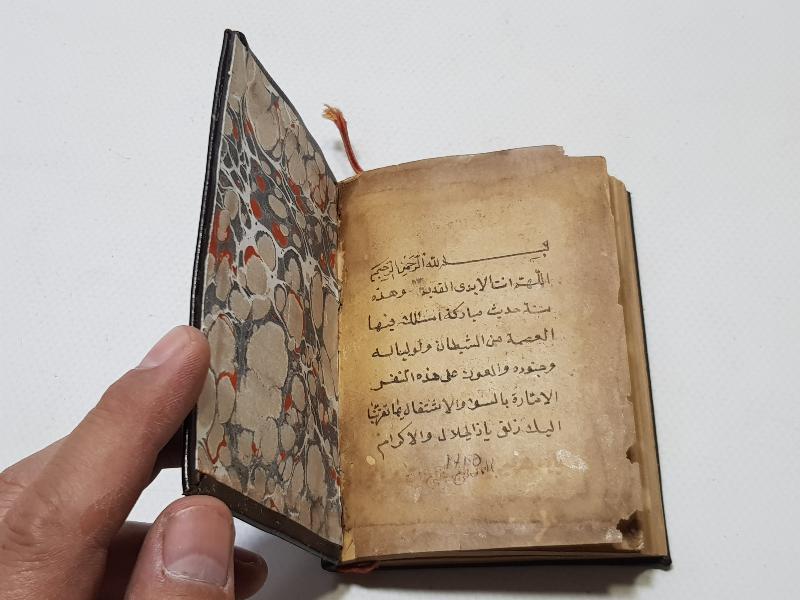 بسم الله الرحمن الرحيم
اللهم انت الابدى القديم وهذه
سنة حديث مباركة اسئلك فيها
العصمة من الشيطان واوليائه
وجنوده والعون على هذه النفس
الامارة بالسوء والاشتغال بما يقربنى
اليك زلفى ياذالجلال والاكرام